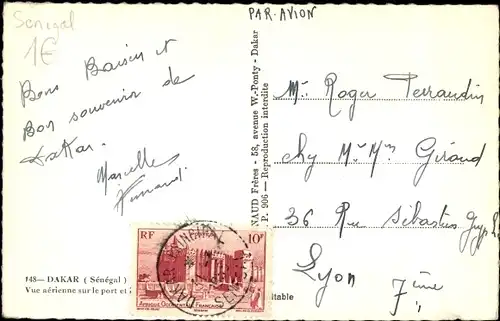 Senegal
1€
PAR-AVION
Bons Baisers et
Bon souvenir de
Dakar.
Marcelle
148— DAKAR ( Sénégal )
Vue aérienne sur le port et
RF 10F
AFRIQUE OCCIDENTALE FRANÇAISE
DAKAR
NAUD Frères - 58, avenue W.-Ponty - Dakar
P. 906 — Reproduction interdite
itable
Mr Roger Terraudin
chy Mr Mme Giraud
36 Rue Sébastien Gryphe
Lyon 7ème